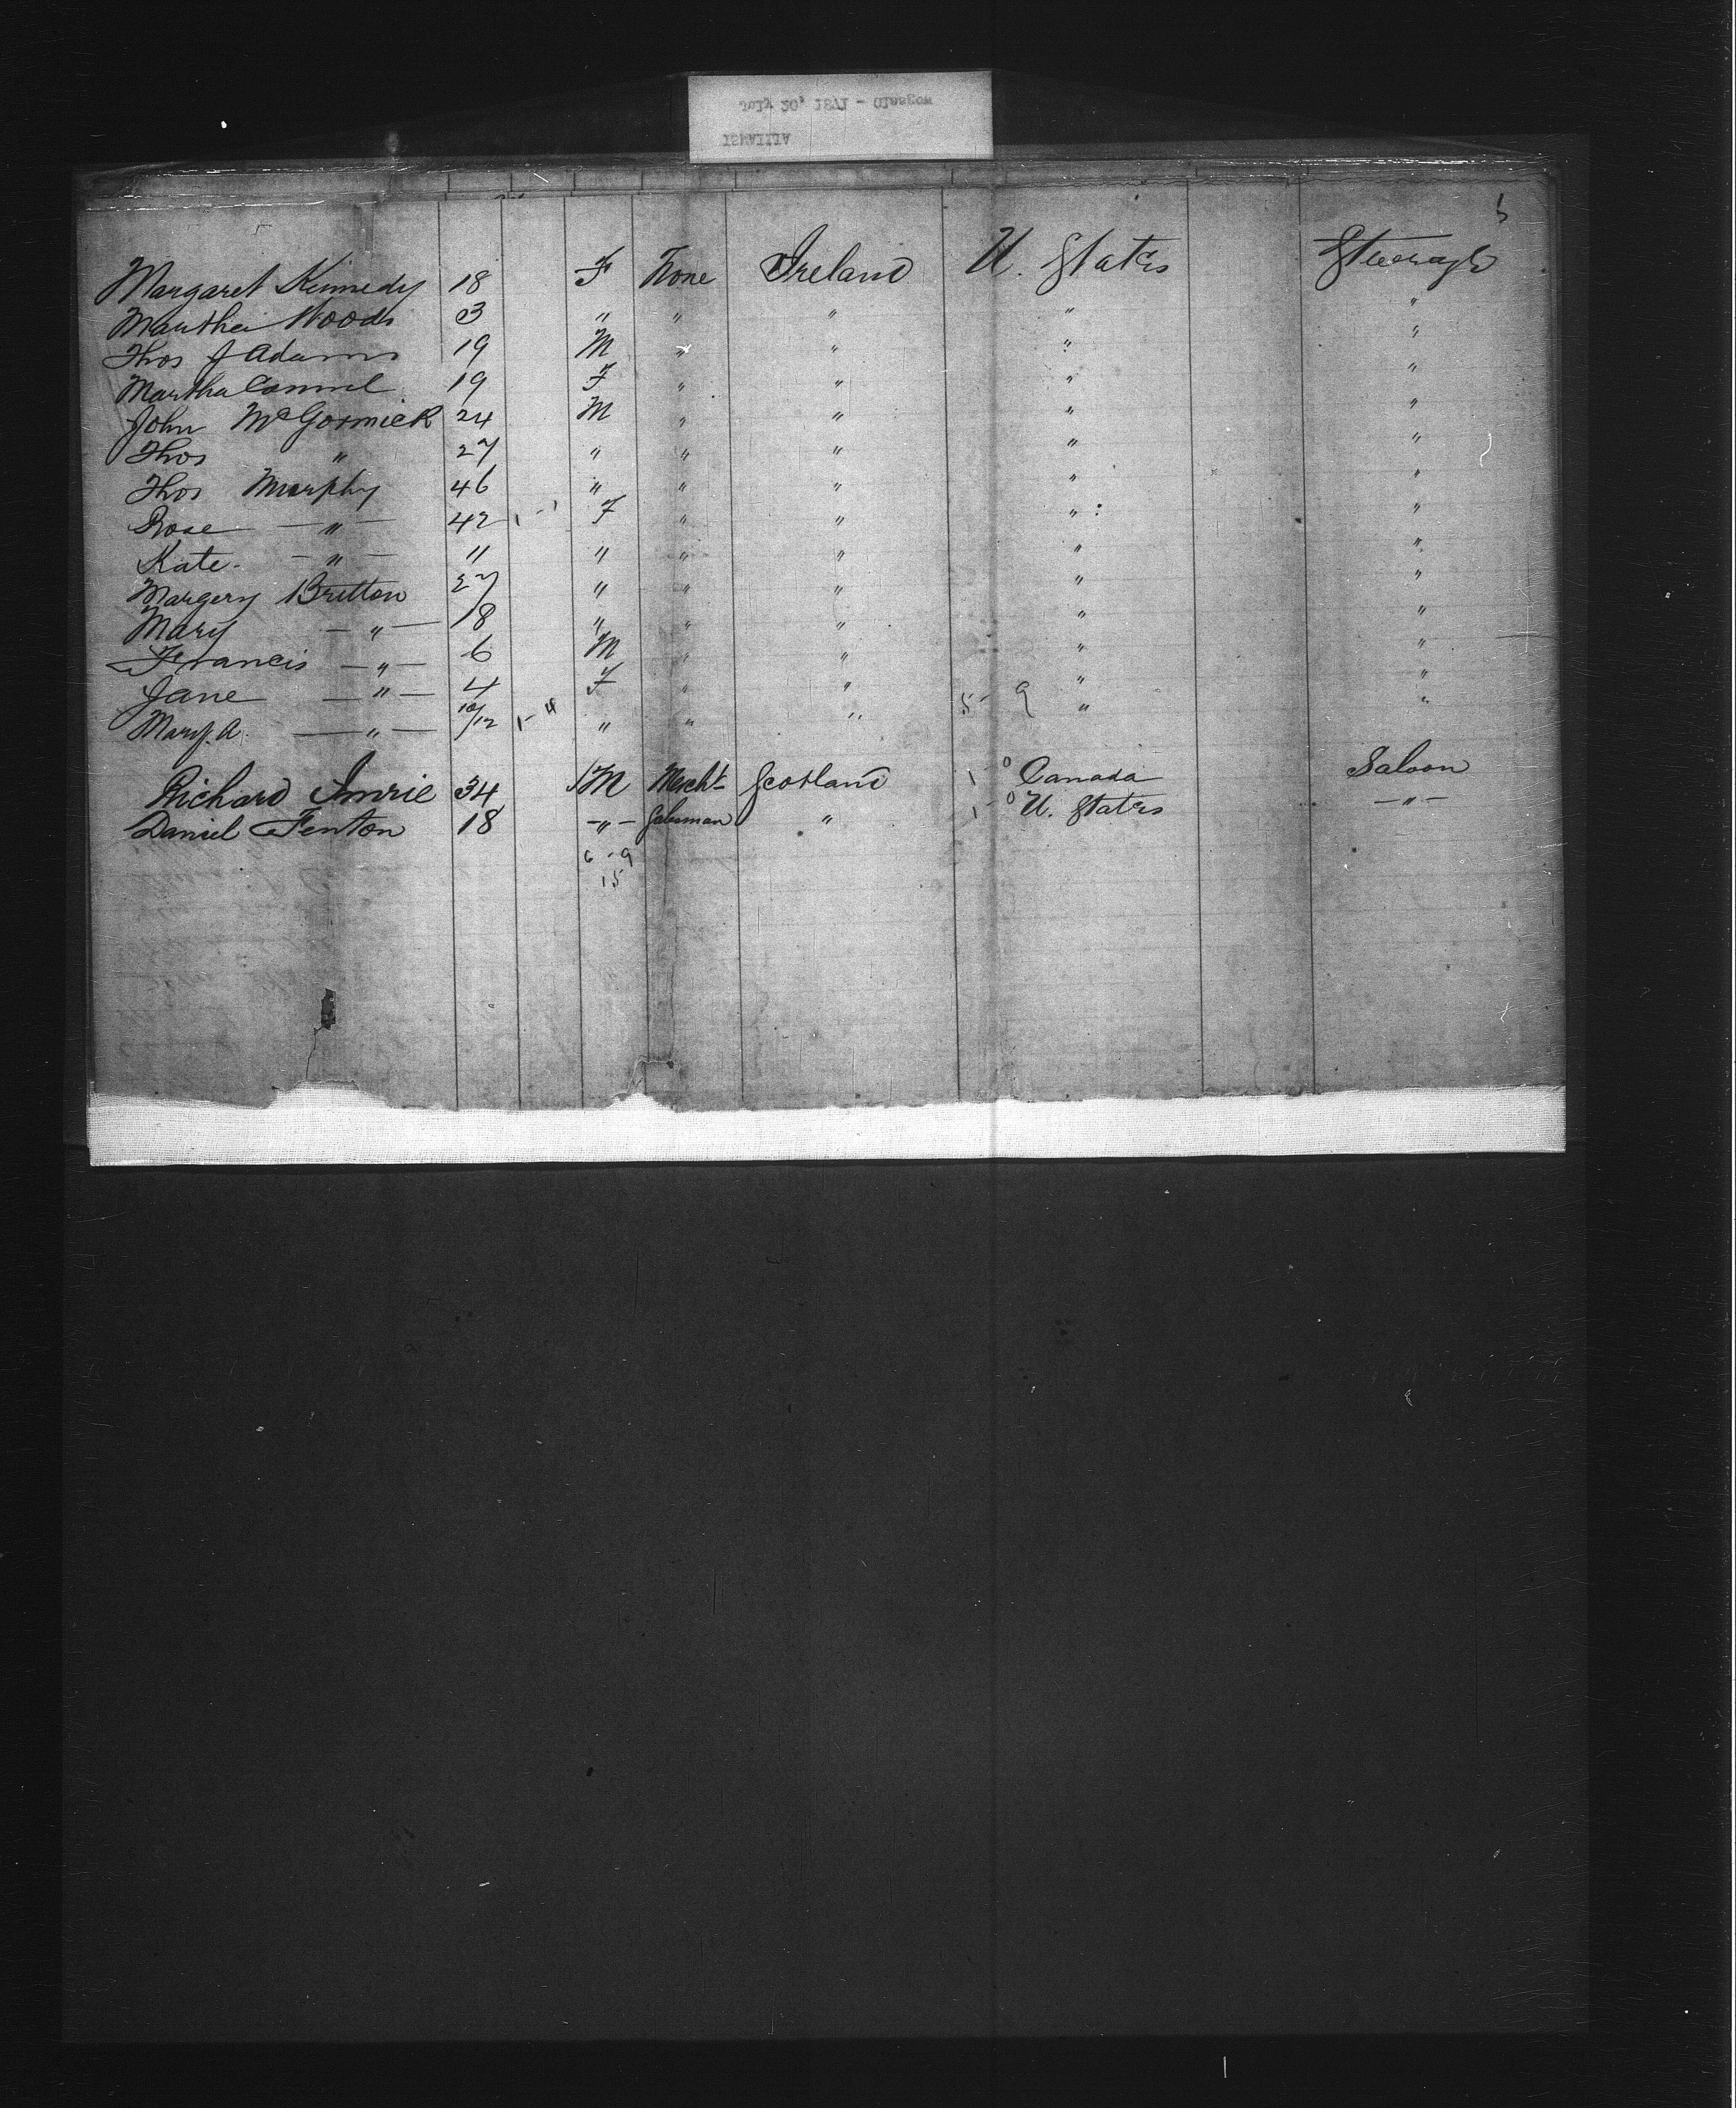 ISMAILIA
July 20, 1871 - Glasgow
Margaret Kennedy 18 F None Ireland U. States Steerage
Martha Woods 3 " " " " "
Thos J Adams 19 M " " " "
Martha Connel 19 F " " " "
John McGormick 24 M " " " "
Thos " 27 " " " " "
Thos Murphy 46 " " " " "
Rose — " — 42 1 - 1 F " " " "
Kate — " — " " " " " "
Margery Britton 27 " " " " "
Mary — " — 18 " " " " "
Francis — " — 6 M " " " "
Jane — " — 4 F " " " "
Mary A. — " — 10/12 1 - 4 " " " 5 - 9 " "
Richard Imrie 34 M Mercht Scotland 1 - 0 Canada Saloon
Daniel Fenton 18 — " — Salesman " 1 - 0 U. States — " —
6 - 9
15